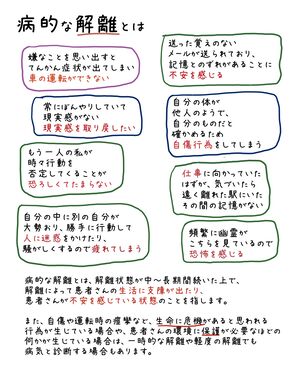 病的な解離とは
嫌なことを思い出すと
てんかん症状が出てしまい
車の運転ができない
送った覚えのない
メールが送られており、
記憶とのずれがあることに
不安を感じる
常にぼんやりしていて
現実感がない
現実感を取り戻したい
自分の体が
他人のようで、
自分のものだと
確かめるため
自傷行為をしてしまう
もう一人の私が
時々行動を
否定してくることが
恐ろしくてたまらない
仕事に向かっていた
はずが、気づいたら
遠く離れた駅にいた
その間の記憶がない
自分の中に別の自分が
大勢おり、勝手に行動して
人に迷惑をかけたり、
騒がしくするので疲れてしまう
頻繁に幽霊が
こちらを見ているので
恐怖を感じる
病的な解離とは、解離状態が中〜長期間続いた上で、
解離によって患者さんの生活に支障が出たり、
患者さんが不安を感じている状態のことを指します。
また、自傷や運転時の痙攣など、生命に危機があると思われる
行為が生じている場合や、患者さんの環境に保護が必要なほどの
何かが生じている場合は、一時的な解離や軽度の解離でも
病気と診断する場合もあります。